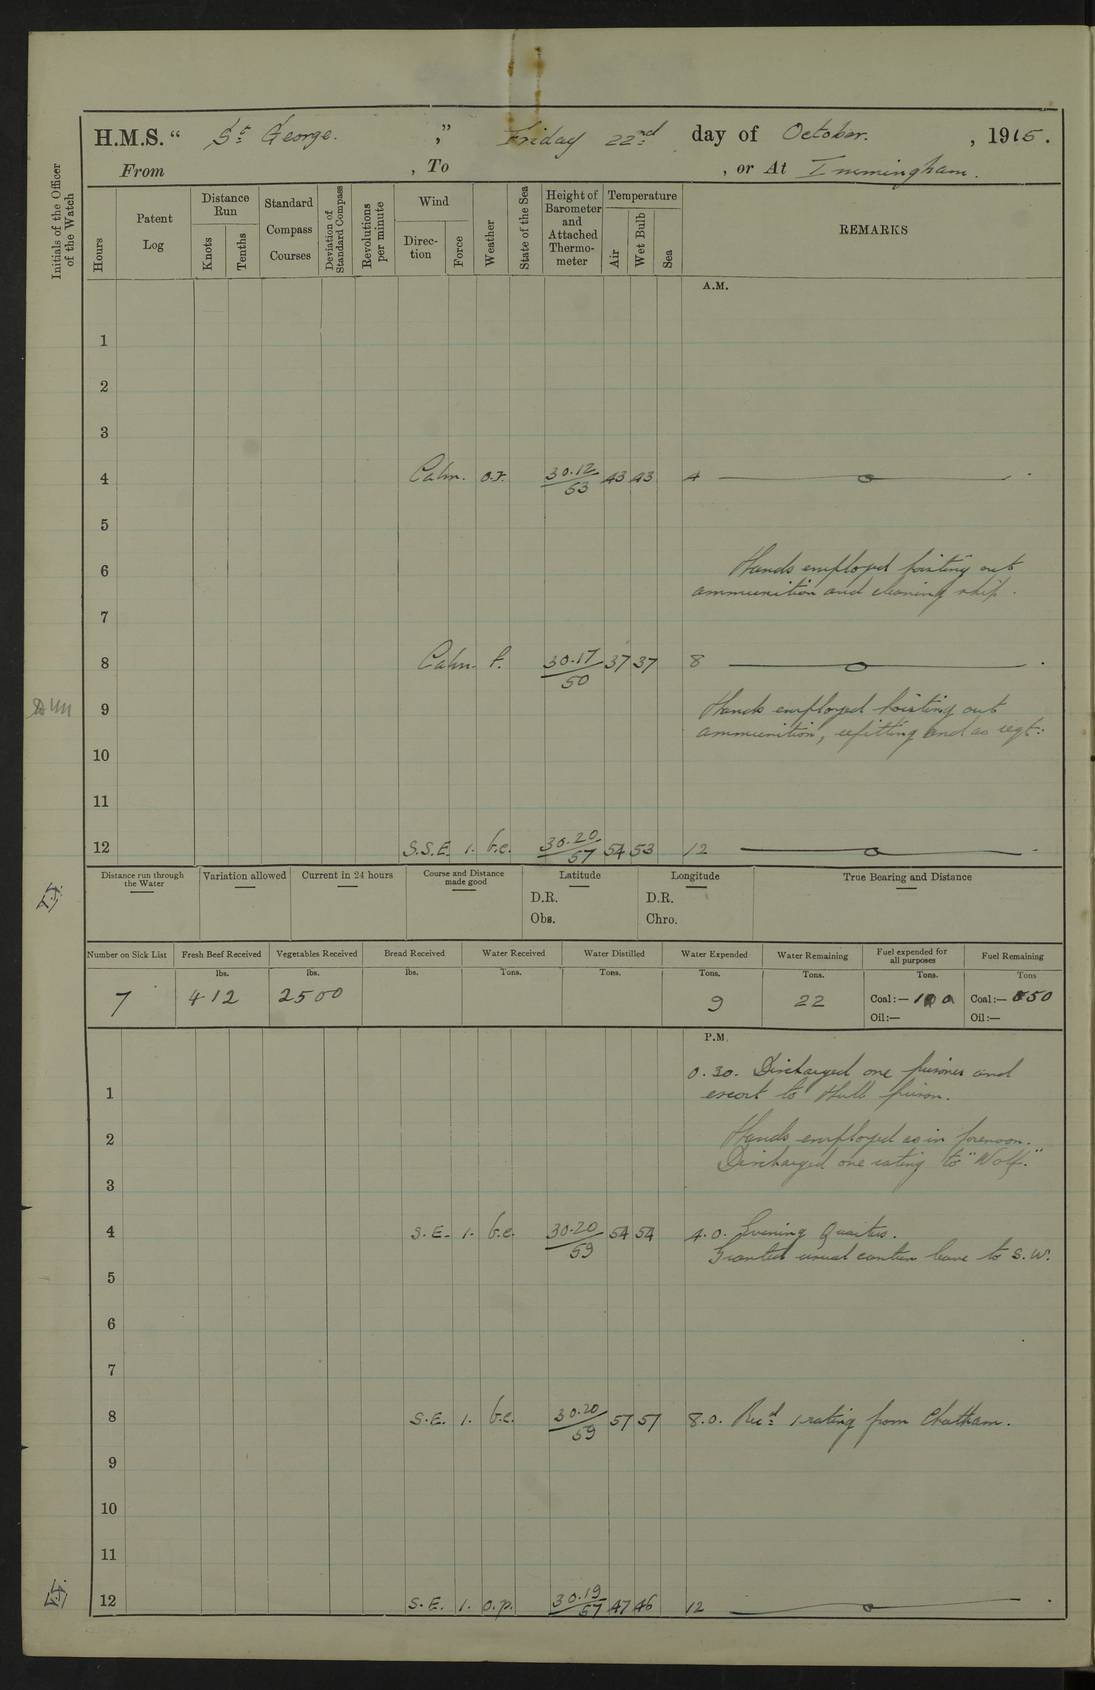 H.M.S. “ St George. ,” Friday 22nd day of October. , 1915.
From , To , or At Immingham.
Initials of the Officer of the Watch
Hours
Patent Log
Distance Run
Knots
Tenths
Standard Compass Courses
Deviation of Standard Compass
Revolutions per minute
Wind
Direc-tion
Force
Weather
State of the Sea
Height of Barometer and Attached Thermo-meter
Temperature
Air
Wet Bulb
Sea
REMARKS
A.M.
1
2
3
4 Calm. 30.12/53 43 43 4
5
6 Hands employed hoisting out
ammunition and cleaning ship.
7
8 Calm. f. 30.17/50 37 37 8
9 Hands employed hoisting out
ammunition, refitting and as reqt:
10
11
12 S.S.E. 1. b.c. 30.20/57 54 53 12
Distance run through the Water
Variation allowed
Current in 24 hours
Course and Distance made good
Latitude
D.R.
Obs.
Longitude
D.R.
Chro.
True Bearing and Distance
Number on Sick List
Fresh Beef Received
Vegetables Received
Bread Received
Water Received
Water Distilled
Water Expended
Water Remaining
Fuel expended for all purposes
Fuel Remaining
lbs. lbs. lbs. Tons. Tons. Tons. Tons. Tons. Tons
7 412 2500 9 22 Coal:— Coal:— 850
Oil:— Oil:—
P.M.
0.30. Discharged one prisoner and
1 escort to Hull prison.
2 Hands employed as in forenoon.
Discharged one rating to "Wolf."
3
4 S.E. 1. b.c. 30.20/59 54 54 4.0. Evening Quarters.
Granted usual canteen leave to S.W.
5
6
7
8 S.E. 1. b.c. 30.20/59 57 57 8.0. Recd 1 rating from Chatham.
9
10
11
12 S.E. 1. o.p. 30.19/57 47 46 12